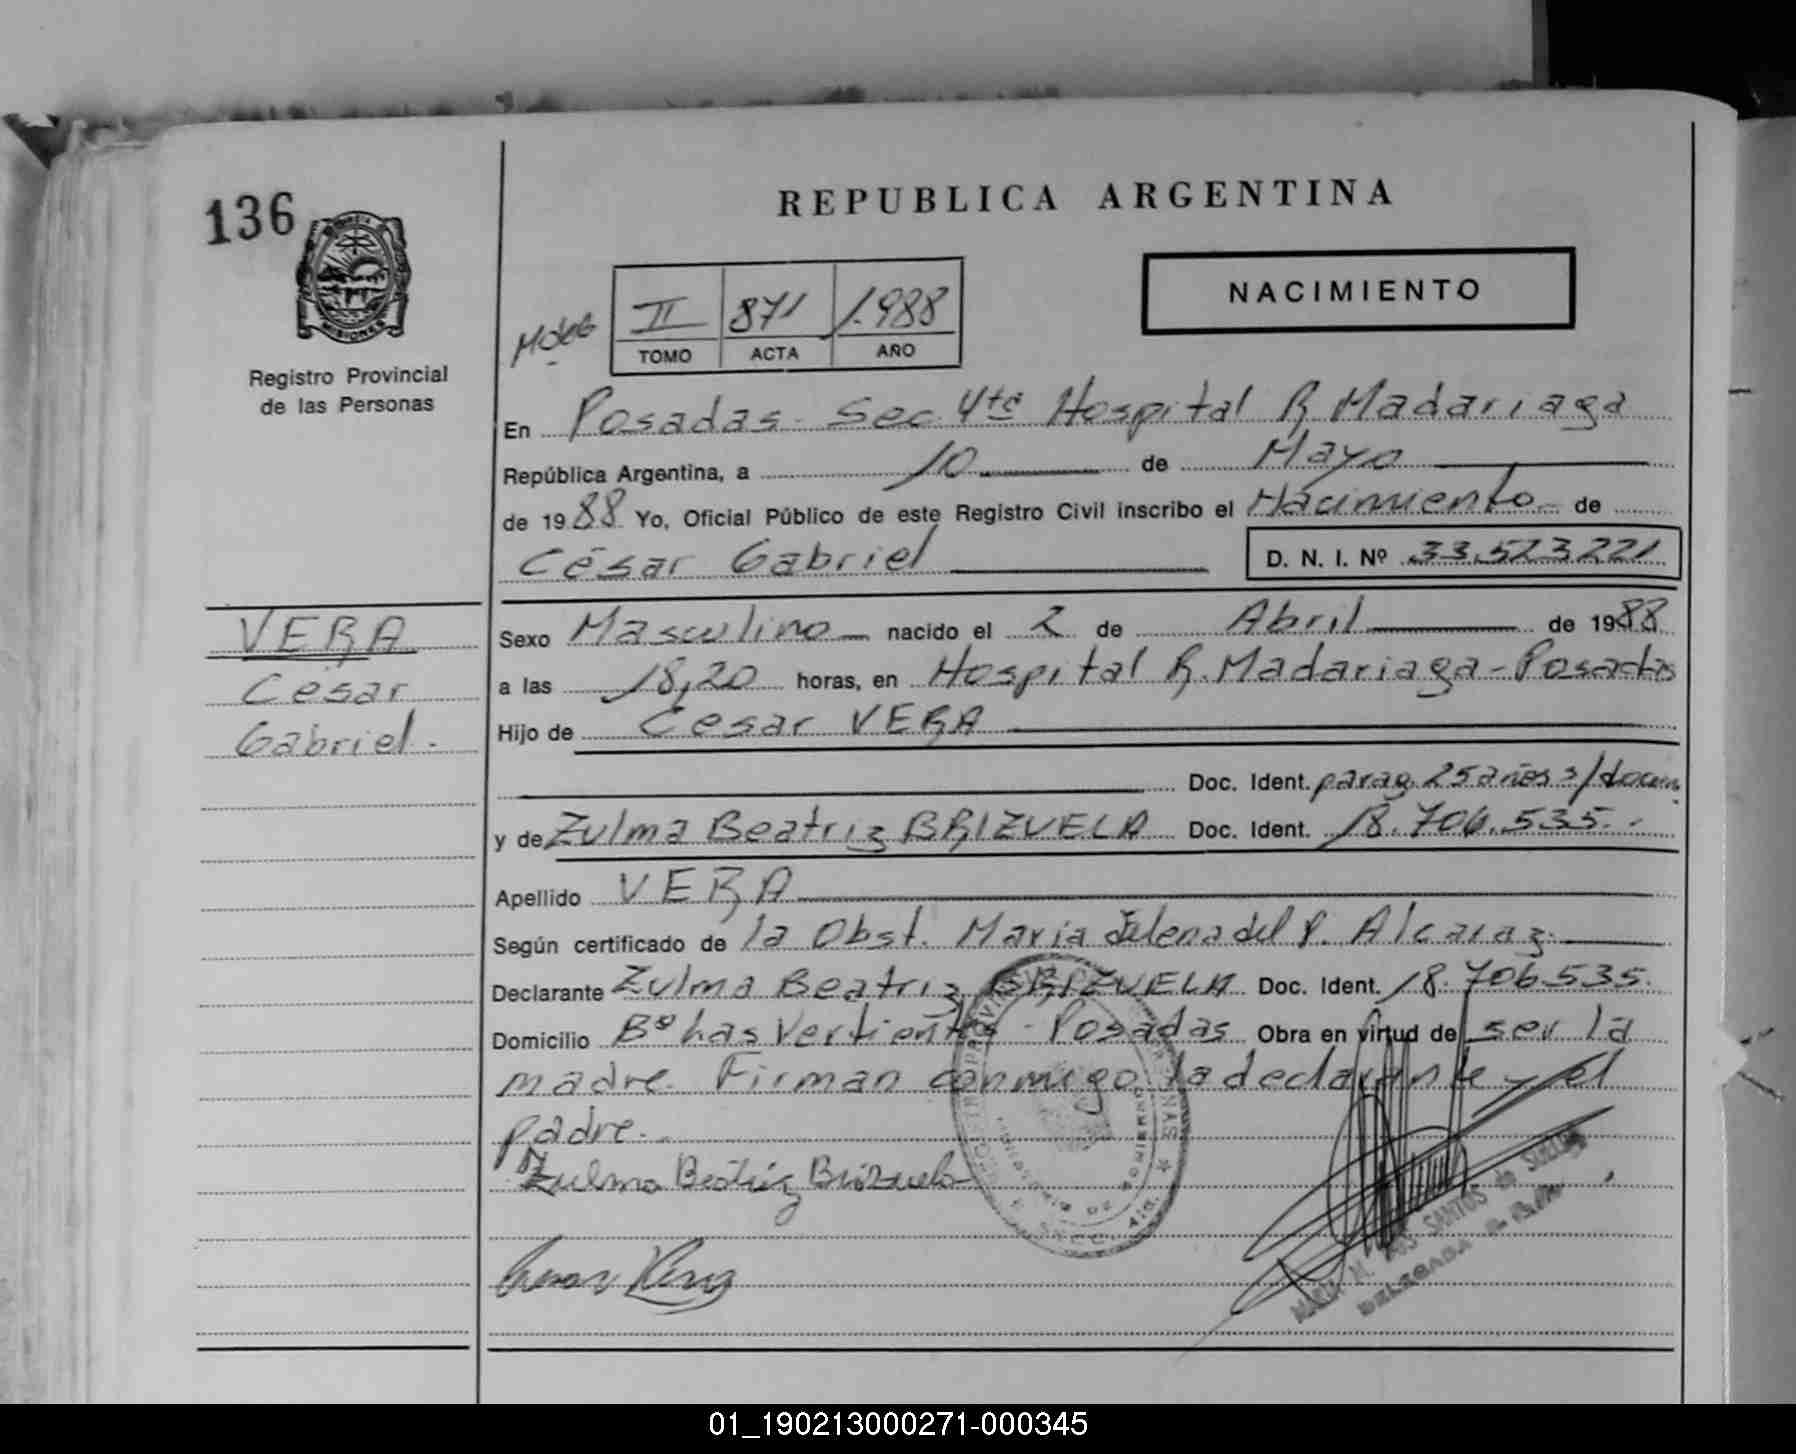 136
MISIONES
Registro Provincial
de las Personas
REPUBLICA ARGENTINA
NACIMIENTO
II 871 1.988
TOMO ACTA AÑO
En Posadas - Sec. 4ta Hospital R. Madariaga
República Argentina, a 10 de Mayo
de 1988 Yo, Oficial Público de este Registro Civil inscribo el Nacimiento de
César Gabriel D. N. I. Nº 33.523.221
VERA
César
Gabriel.
Sexo Masculino nacido el 2 de Abril de 1988
a las 18,20 horas, en Hospital R. Madariaga - Posadas
Hijo de Cesar VERA
Doc. Ident. parag. 25 años s/docum
y de Zulma Beatriz BRIZUELA Doc. Ident. 18.706.535.
Apellido VERA
Según certificado de la Obst. Maria Elena del P. Alcaraz
Declarante Zulma Beatriz BRIZUELA Doc. Ident. 18.706.535.
Domicilio Bº Las Vertientes - Posadas Obra en virtud de ser la
madre. Firman conmigo la declarante y el
padre.
Zulma Beatriz Brizuela
DELEGADA
01_190213000271-000345